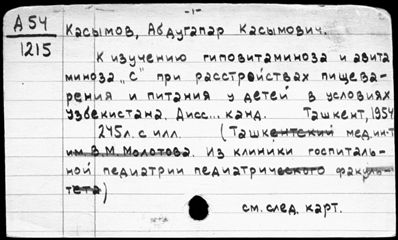 -1-
А 54
1215
Касымов, Абдугапар Касымович.
К изучению гиповитаминоза и авита
миноза „С" при расстройствах пищева-
рения и питания у детей в условиях
Узбекистана. Дисс... канд. Ташкент, 1954
245 л. с илл. (Ташкентский мединт
им В.М. Молотова. Из клиники госпиталь-
ной педиатрии педиатрического факуль-
тета)
см. след. карт.